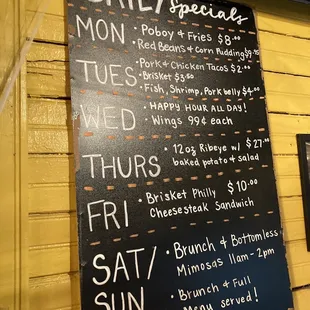 DAILY specials
MON · Poboy & Fries $8.00
· Red Beans & Corn Pudding $9.75
TUES · Pork & Chicken Tacos $2.00
· Brisket $3.50
· Fish, Shrimp, Pork belly $4.00
WED · HAPPY HOUR ALL DAY!
· Wings 99¢ each
THURS · 12oz Ribeye w/ $27.00
baked potato & salad
FRI · Brisket Philly $10.00
Cheesesteak Sandwich
SAT/ · Brunch & Bottomless
Mimosas 11am-2pm
SUN · Brunch & Full
Menu served!